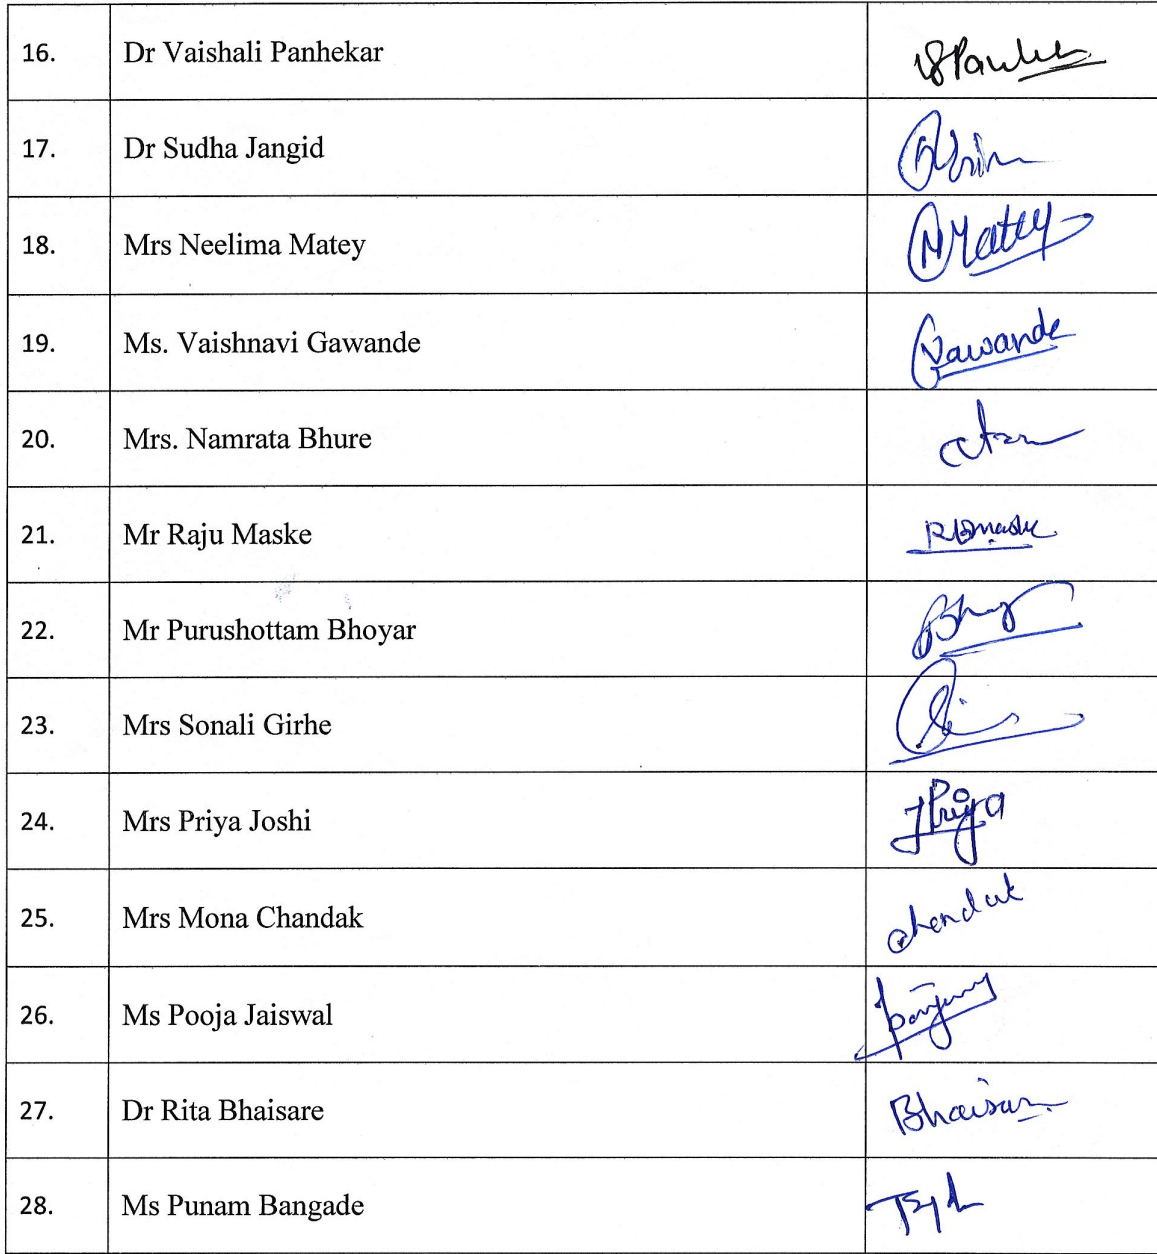 16. Dr Vaishali Panhekar
17. Dr Sudha Jangid
18. Mrs Neelima Matey NMatey
19. Ms. Vaishnavi Gawande Gawande
20. Mrs. Namrata Bhure
21. Mr Raju Maske
22. Mr Purushottam Bhoyar
23. Mrs Sonali Girhe
24. Mrs Priya Joshi JPriya
25. Mrs Mona Chandak Chandak
26. Ms Pooja Jaiswal
27. Dr Rita Bhaisare
28. Ms Punam Bangade